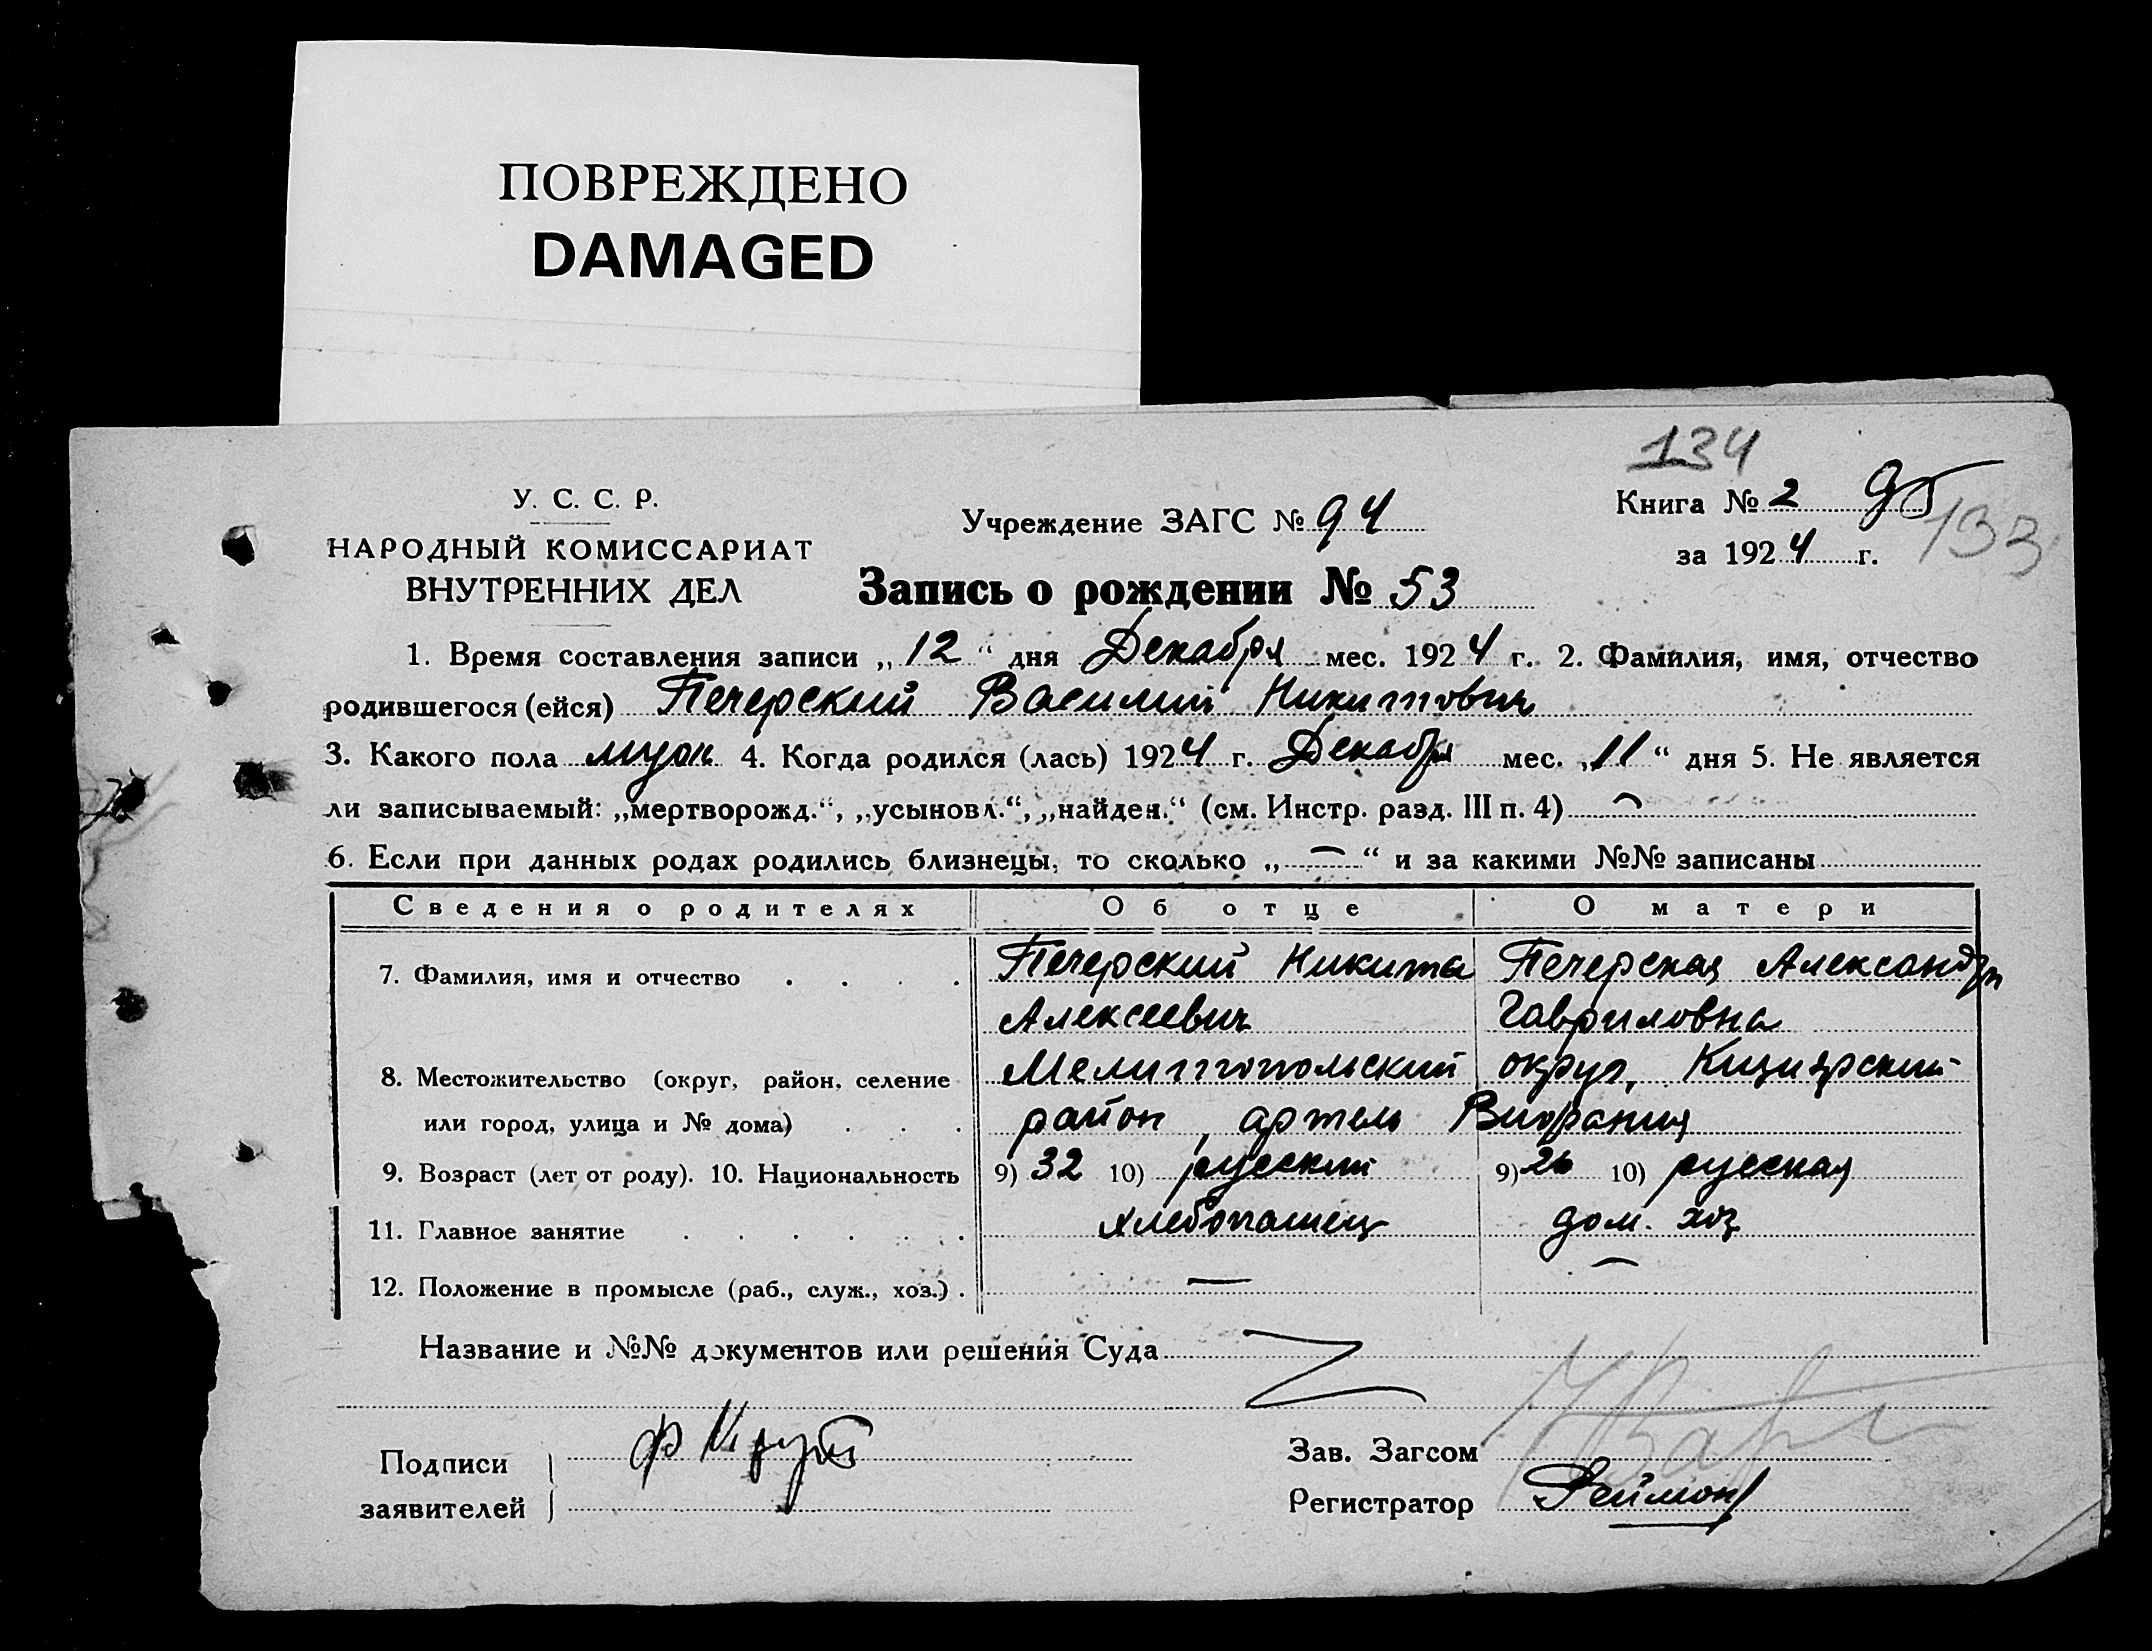 ПОВРЕЖДЕНО
DAMAGED
134
У. С. С. Р.
НАРОДНЫЙ КОМИССАРИАТ
ВНУТРЕННИХ ДЕЛ
Учреждение ЗАГС № 94
Книга № 2 95
133
за 1924 г.
Запись о рождении № 53
1. Время составления записи „12“ дня Декабря мес. 1924 г. 2. Фамилия, имя, отчество
родившегося (ейся) Печерский Василий Никитович
3. Какого пола муж 4. Когда родился (лась) 1924 г. Декабря мес. „11“ дня 5. Не является
ли записываемый: „мертворожд.“, „усыновл.“, „найден.“ (см. Инстр. разд. III п. 4) —
6. Если при данных родах родились близнецы, то сколько „—“ и за какими №№ записаны
Сведения о родителях Об отце О матери
7. Фамилия, имя и отчество . . . . Печерский Никита Печерская Александра
Алексеевич Гавриловна
8. Местожительство (округ, район, селение Мелитопольский округ,
или город, улица и № дома) . . . район, артель
9. Возраст (лет от роду). 10. Национальность 9) 32 10) русский 9) 26 10) русская
11. Главное занятие . . . . . . хлебопашец дом. хоз
12. Положение в промысле (раб., служ., хоз.) . — —
Название и №№ документов или решения Суда
Подписи
заявителей
Зав. Загсом
Регистратор